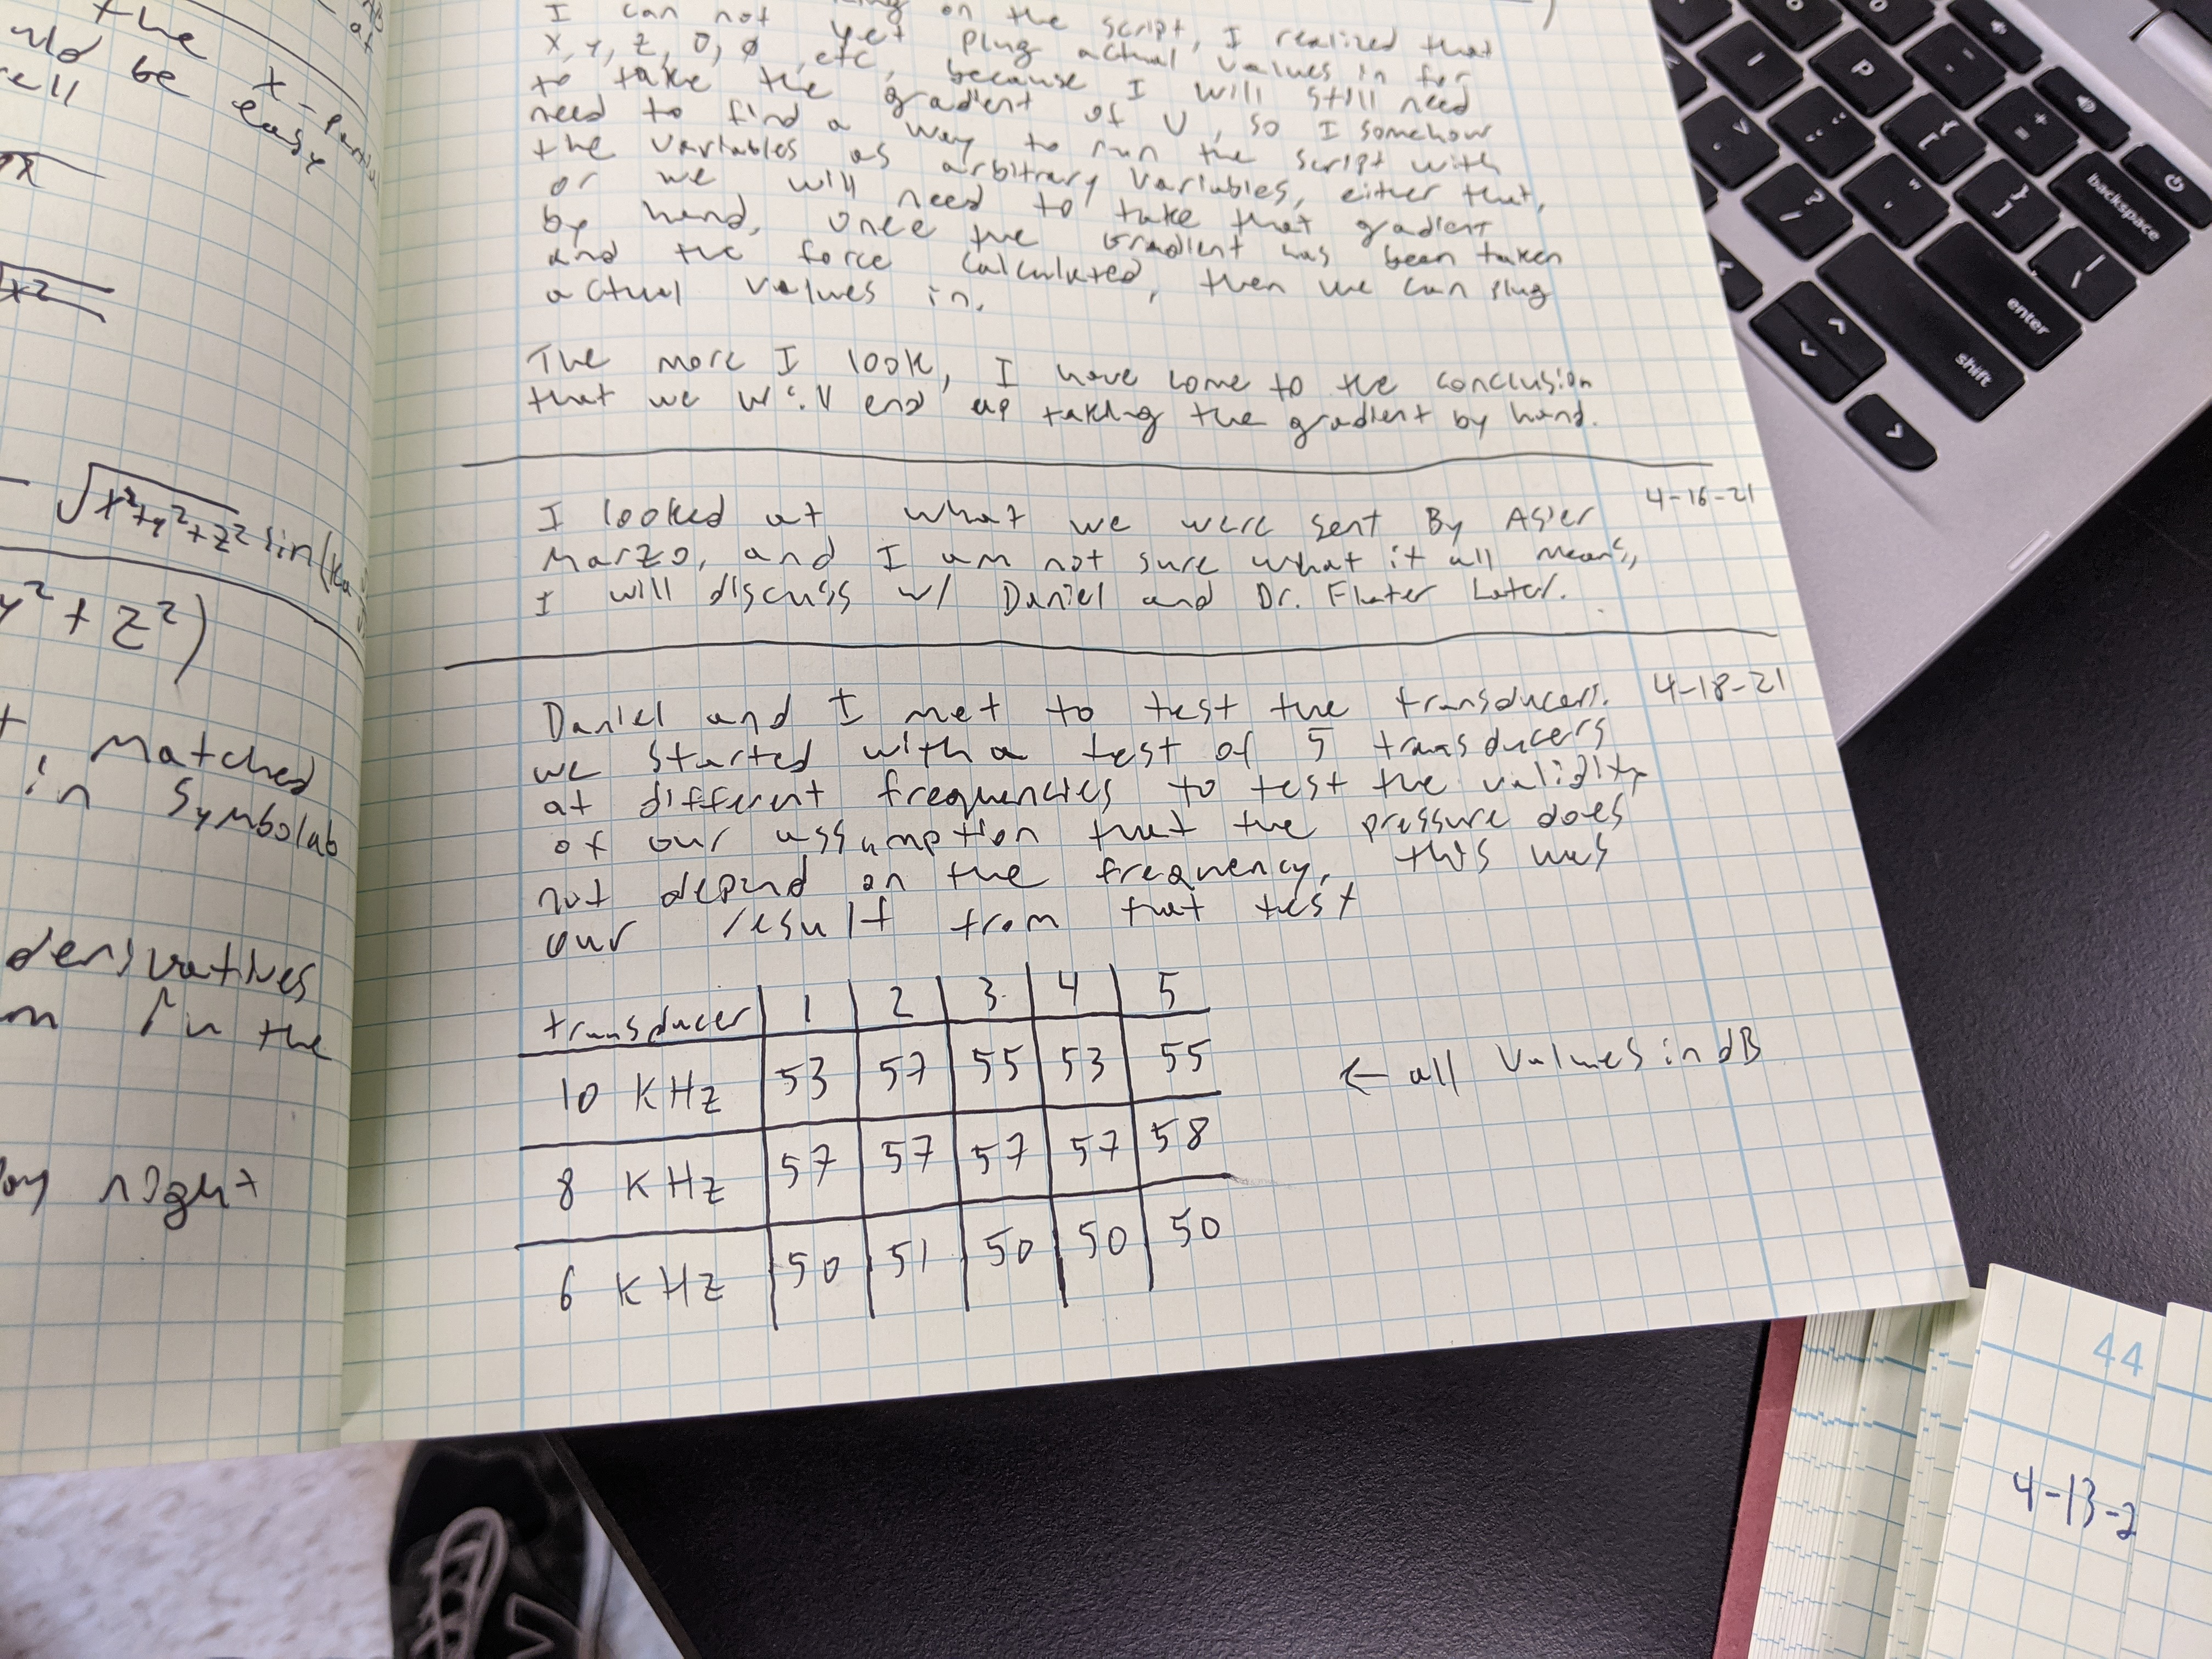 the x-partial
be easy
I can not yet plug actual values in for
on the script, I realized that
X, Y, Z, θ, φ, etc, because I will still need
to take the gradient of U, so I somehow
need to find a way to run the script with
the variables as arbitrary variables, either that,
or we will need to take that gradient
by hand, once the gradient has been taken
and the force calculated, then we can plug
actual values in.
The more I look, I have come to the conclusion
that we will end up taking the gradient by hand.
4-16-21
I looked at what we were sent By Asier
Marzo, and I am not sure what it all means,
I will discuss w/ Daniel and Dr. Fluter Later.
4-18-21
Daniel and I met to test the transducers.
we started with a test of 5 transducers
at different frequencies to test the validity
of our assumption that the pressure does
not depend on the frequency, this was
our result from that test
transducer 1 2 3 4 5
10 KHz 53 57 55 53 55
← all values in dB
8 KHz 57 57 57 57 58
6 KHz 50 51 50 50 50
√x²
- √x²+y²+z² sin(k
y² + z²)
Matched
in Symbolab
derivatives
in the
night
P
backspace
enter
shift
44
4-13-2